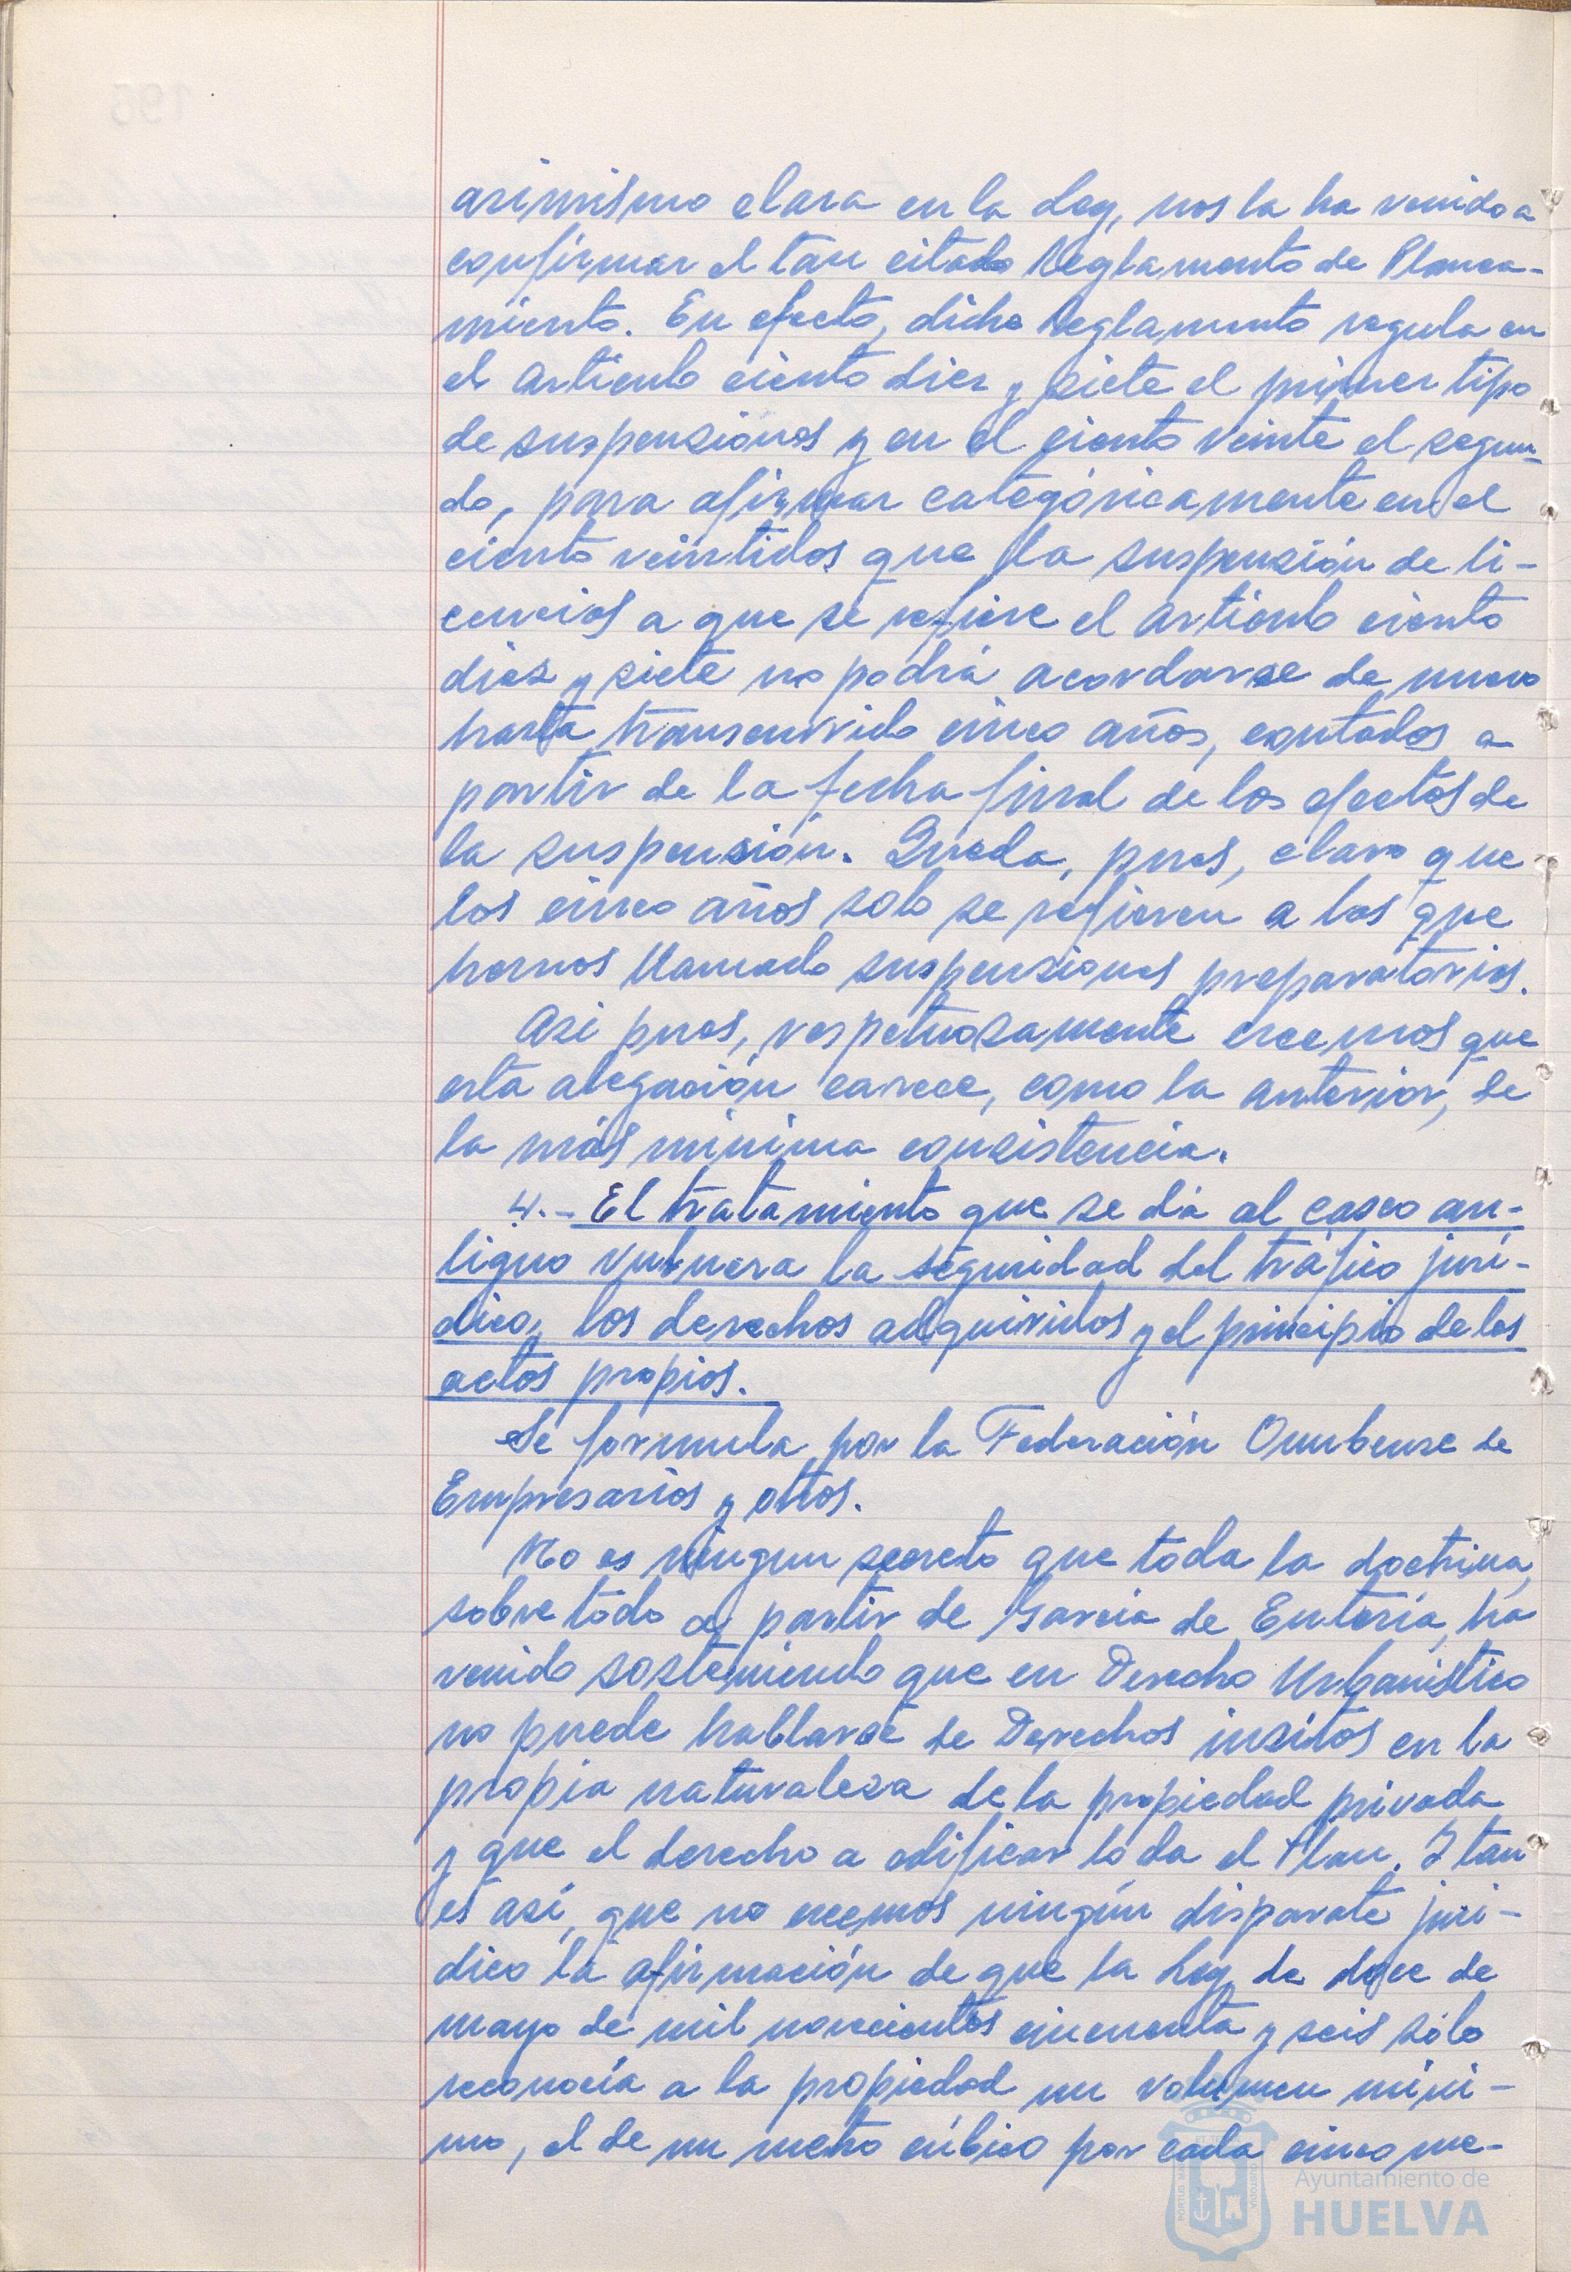 asimismo clara en la Ley, nos la ha venido a
confirmar el tan citado Reglamento de Planea-
miento. En efecto, dicho Reglamento regula en
el artículo ciento diez y siete el primer tipo
de suspensiones y en el ciento veinte el segun-
do, para afirmar categóricamente en el
ciento veintidos que la suspensión de li-
cencias a que se refiere el artículo ciento
diez y siete no podrá acordarse de nuevo
hasta transcurrido cinco años, contados a
partir de la fecha final de los efectos de
la suspensión. Queda, pues, claro que
los cinco años solo se refieren a las que
hemos llamado suspensiones preparatorias.
Asi pues, respetuosamente creemos que
esta alegación carece, como la anterior, de
la más mínima consistencia.
4.- El tratamiento que se dá al casco an-
tiguo vulnera la seguridad del tráfico jurí-
dico, los derechos adquiridos y el principio de los
actos propios.
Se formula por la Federación Onubense de
Empresarios y otros.
No es ningun secreto que toda la doctrina,
sobre todo a partir de García de Enterría, ha
venido sosteniendo que en Derecho Urbanístico
no puede hablarse de Derechos insitos en la
propia naturaleza de la propiedad privada
y que el derecho a edificar lo da el Plan. Y tan
es así, que no creemos ningún disparate jurí-
dico la afirmación de que la Ley de doce de
mayo de mil novecientos cincuenta y seis sólo
reconocía a la propiedad un volumen míni-
mo, el de un metro cúbico por cada cinco me-
Ayuntamiento de
HUELVA